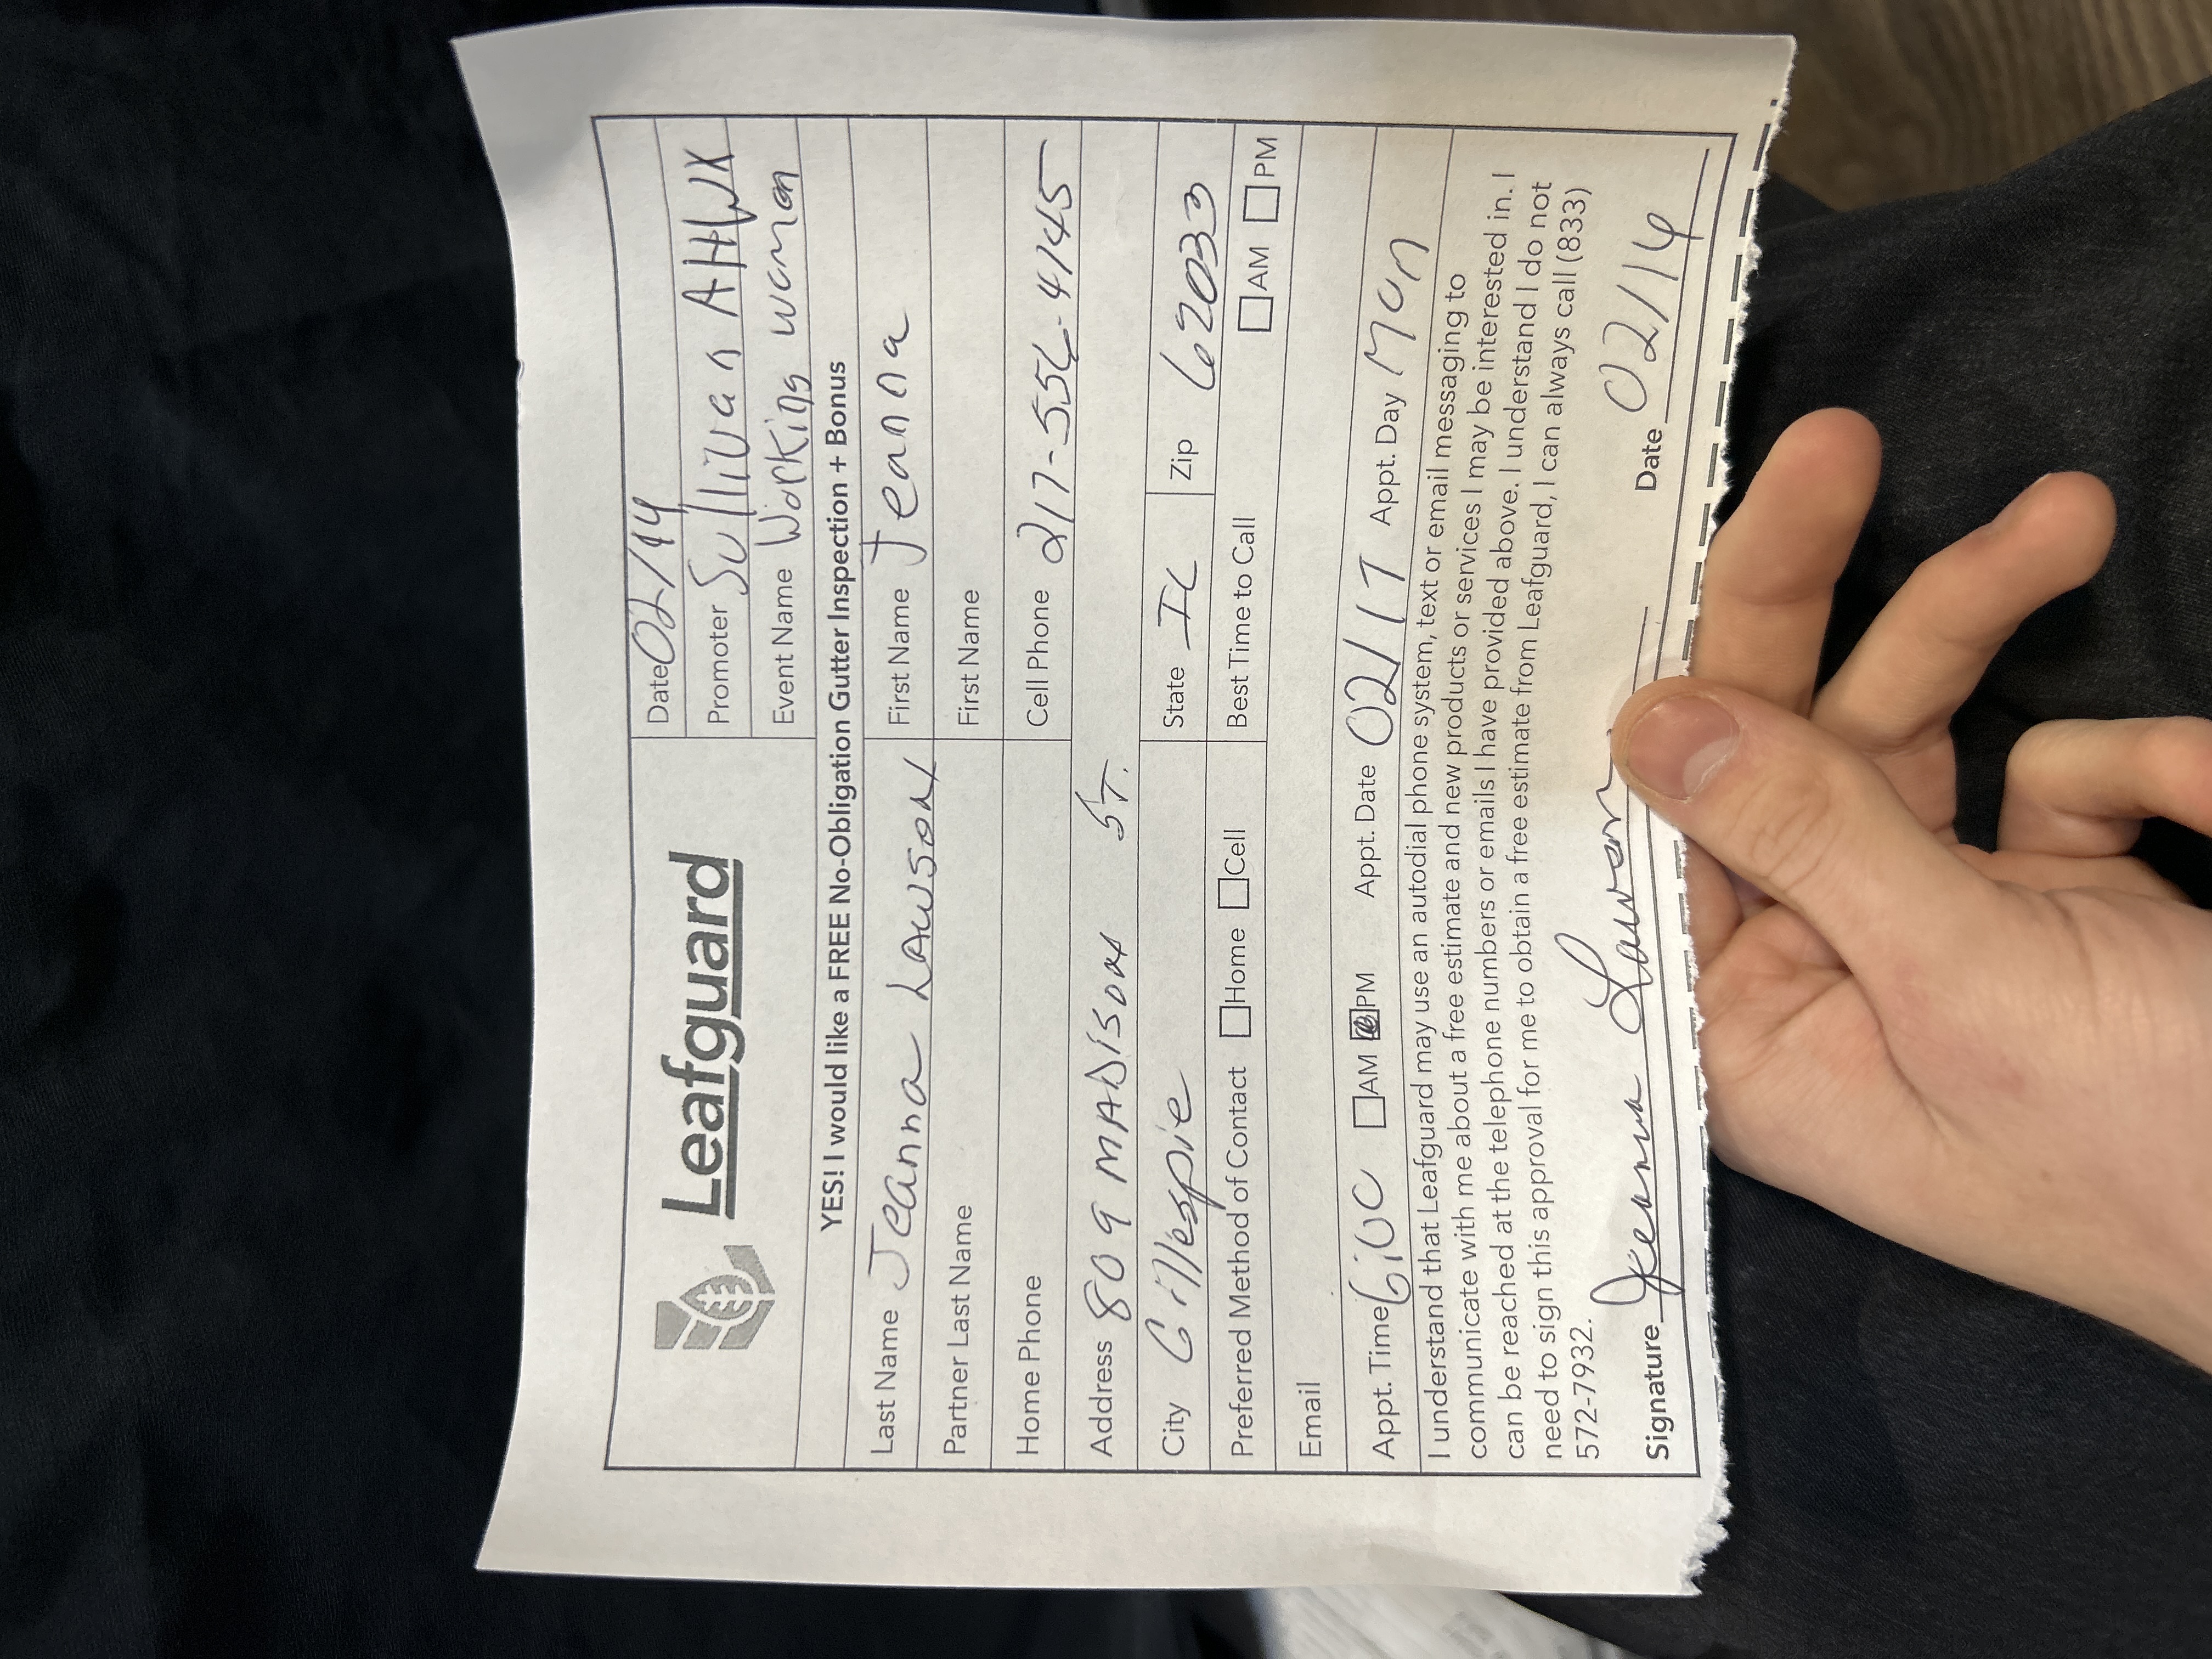 Leafguard
Date 02/14
Promoter Sullivan AHWX
Event Name Working women
YES! I would like a FREE No-Obligation Gutter Inspection + Bonus
Last Name Jeanna LAWSON First Name Jeanna
Partner Last Name First Name
Home Phone Cell Phone 217-556-4745
Address 809 MADISON ST.
City Gillespie State IL Zip 62033
Preferred Method of Contact Home Cell Best Time to Call AM PM
Email
Appt. Time 6:00 AM PM Appt. Date 02/17 Appt. Day Mon
I understand that Leafguard may use an autodial phone system, text or email messaging to
communicate with me about a free estimate and new products or services I may be interested in. I
can be reached at the telephone numbers or emails I have provided above. I understand I do not
need to sign this approval for me to obtain a free estimate from Leafguard, I can always call (833)
572-7932.
Signature Jeanna Lawson Date 02/14